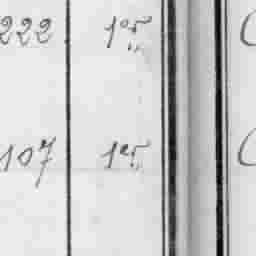 222 1er C
107 1er C